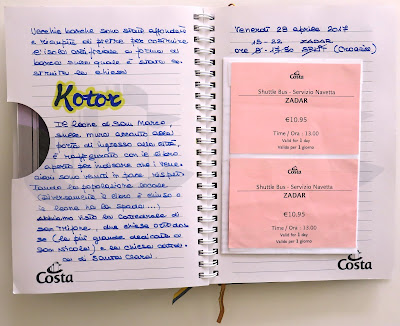 Vecchie barche sono state affondate
e riempite di pietre per costruire
l'isola artificiale a forma di
barca sulla quale è stata co-
struita la chiesa
Kotor
Il leone di San Marco,
sulle mura accanto alla
porta di ingresso alla città,
è raffigurato con il libro
aperto per indicare che i vene-
ziani sono venuti in pace rispet-
tando la popolazione locale
(diversamente il libro è chiuso o
il leone ha la spada...)
Abbiamo visto la cattedrale di
San Trifone, due chiese ortodos-
se (la più grande dedicata a
San Nicola) e la chiesa cattoli-
ca di Santa Clara.
Costa
Venerdì 28 aprile 2017
ZADAR
ore 8-13.30 (Croazia)
Costa
Shuttle Bus - Servizio Navetta
ZADAR
€10.95
Time / Ora - 13.00
Valid for 1 day
Valido per 1 giorno
Costa
Shuttle Bus - Servizio Navetta
ZADAR
€10.95
Time / Ora - 13.00
Valid for 1 day
Valido per 1 giorno
Costa